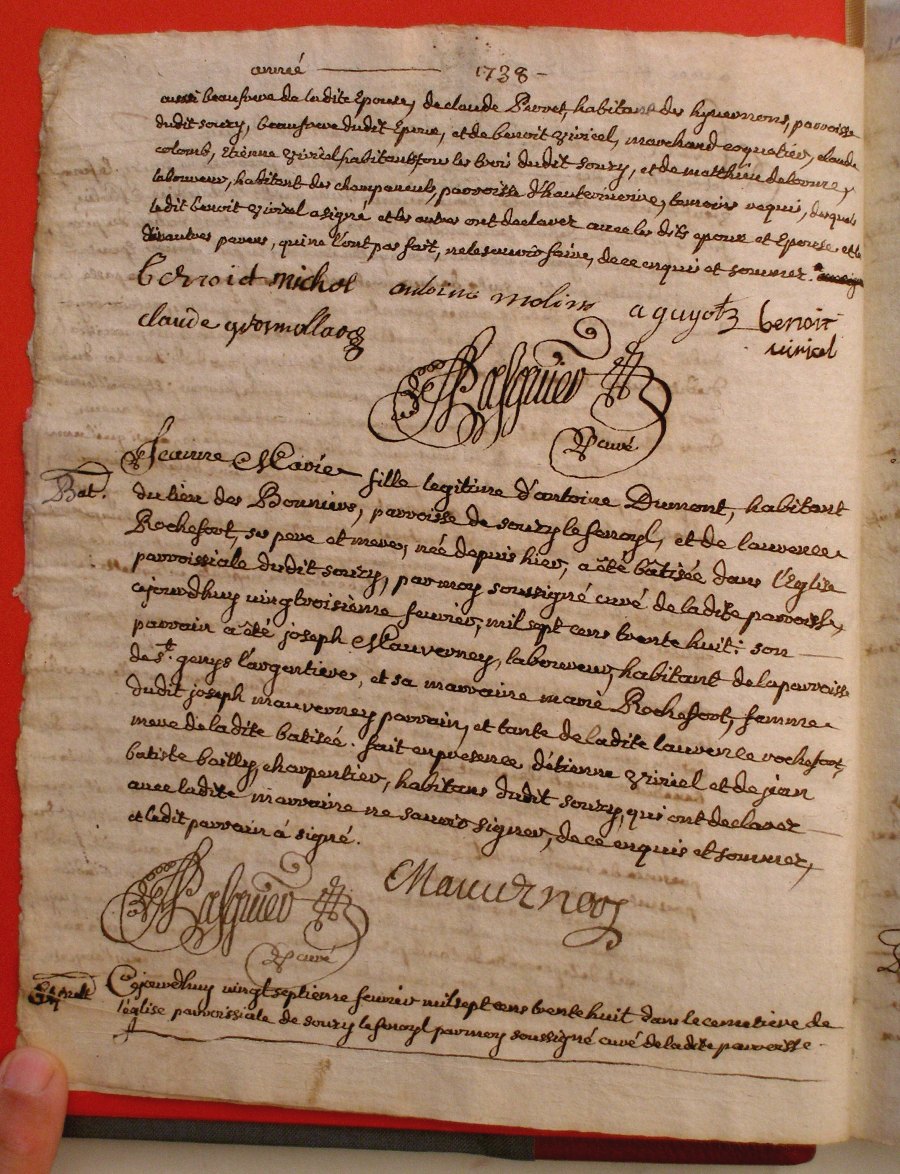 année 1738
aussi beaufrere de ladite Epouse, de claude Perret, habitant des hyvernons, parroisse
dudit souzy, beaufrere dudit Epoux, et de benoit viricel, marchand coquetier, claude
colomb, Etienne viricel habitants tous les trois dudit souzy, et de matthieu delorme,
laboureur, habitant des champeneuls, parroisse d'hauterivoire, temoins requis, desquels
ledit benoit viricel a signé et les autres ont declarez avec les dits epoux et Epouse et les
dits autres parens, qui ne l'ont pas fait, ne le scavoir faire, de ce enquis et sommez.
benoid michol antoine molin a guyot benoit
viricel
claude grosmollard
Pasquier
curé
Bat. Jeanne Marie fille legitime d'antoine Dumont, habitant
du lieu des Bonniers, parroisse de souzy le fenoyl, et de laurence
Rochefort, ses pere et mere, née depuis hier, a été bâtisée dans l'Eglise
parroissiale dudit souzy, par moy soussigné curé de ladite parroisse,
cejourdhuy vingtroisième fevrier, mil sept cens trente huit: son
parrain a été joseph Mauverney, laboureur, habitant de la parroisse
de st. genys l'argentiere, et sa marraine marie Rochefort, femme
dudit joseph mauverney parrain, et tante de ladite laurence rochefort,
mere de ladite batisée. fait en presence d'étienne viricel et de jean
batiste bailly, charpentier, habitans dudit souzy, qui ont declarez
avec ladite marraine ne scavoir signer, de ce enquis et sommez,
et ledit parrain á signé.
Mauverney
Pasquier
curé
Cejourdhuy vingtseptieme fevrier mil sept cens trente huit dans le cemetiere de
l'église parroissiale de souzy le fenoyl par moy soussigné curé de ladite parroisse